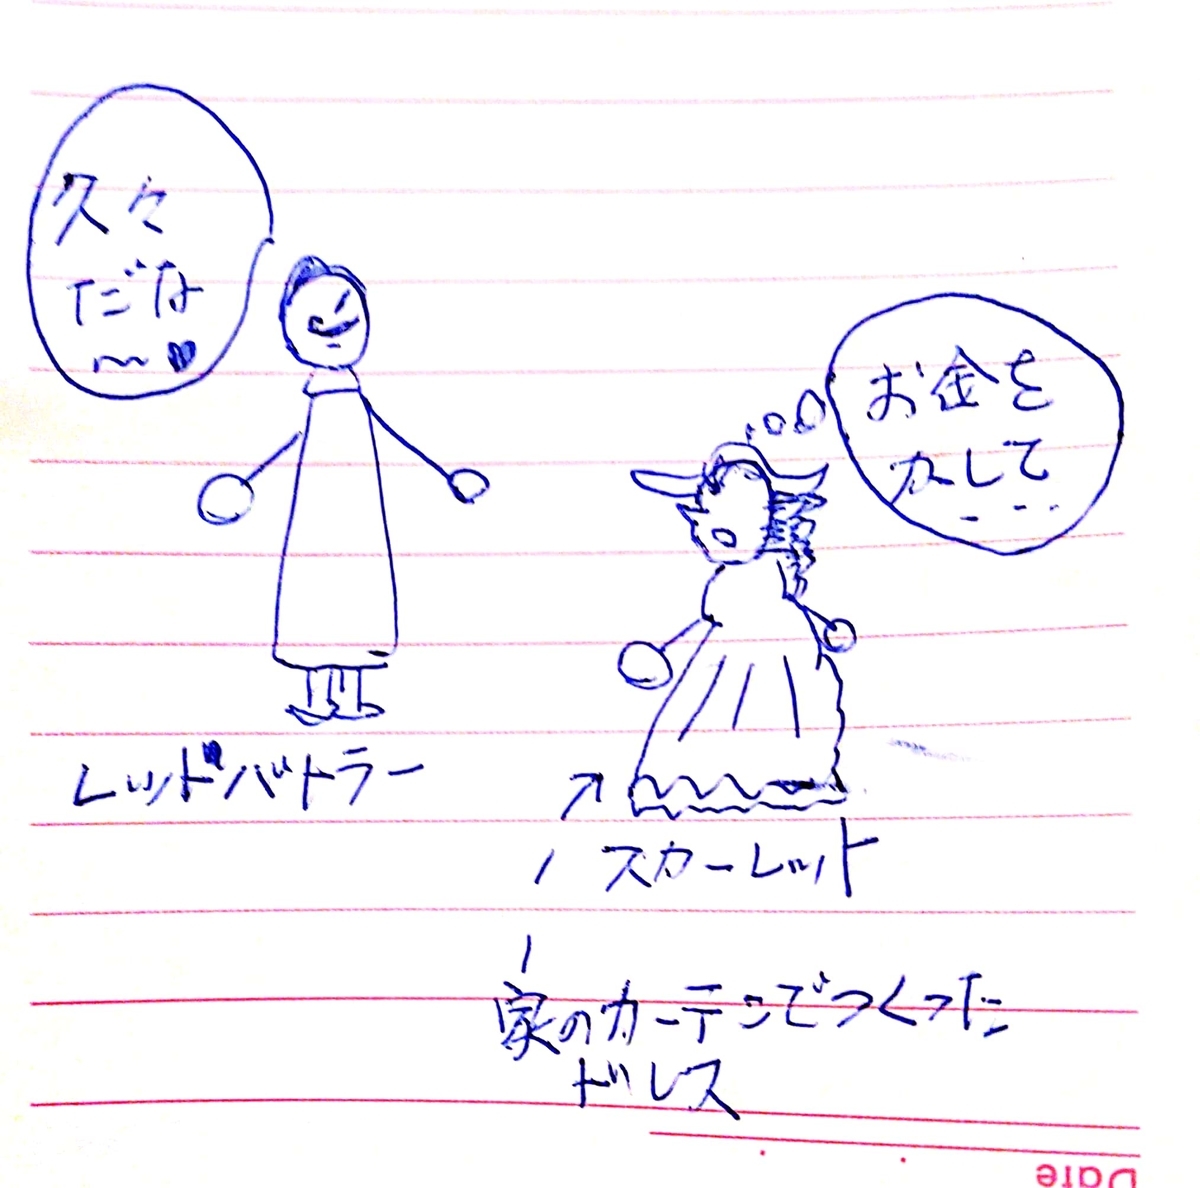 久々
だな
〜♥
お金を
かして
...
レットバトラー
スカーレット
家のカーテンでつくった
ドレス
Date